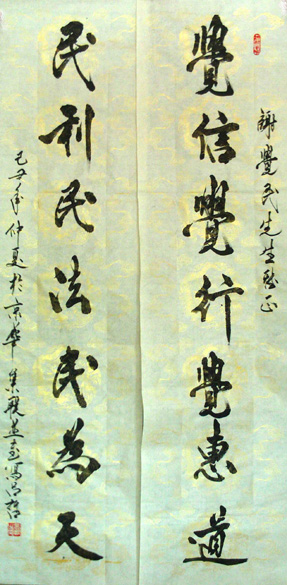 謝覺民先生雅正
覺信覺行覺惠道
民利民法民為天
己丑年仲夏於京華